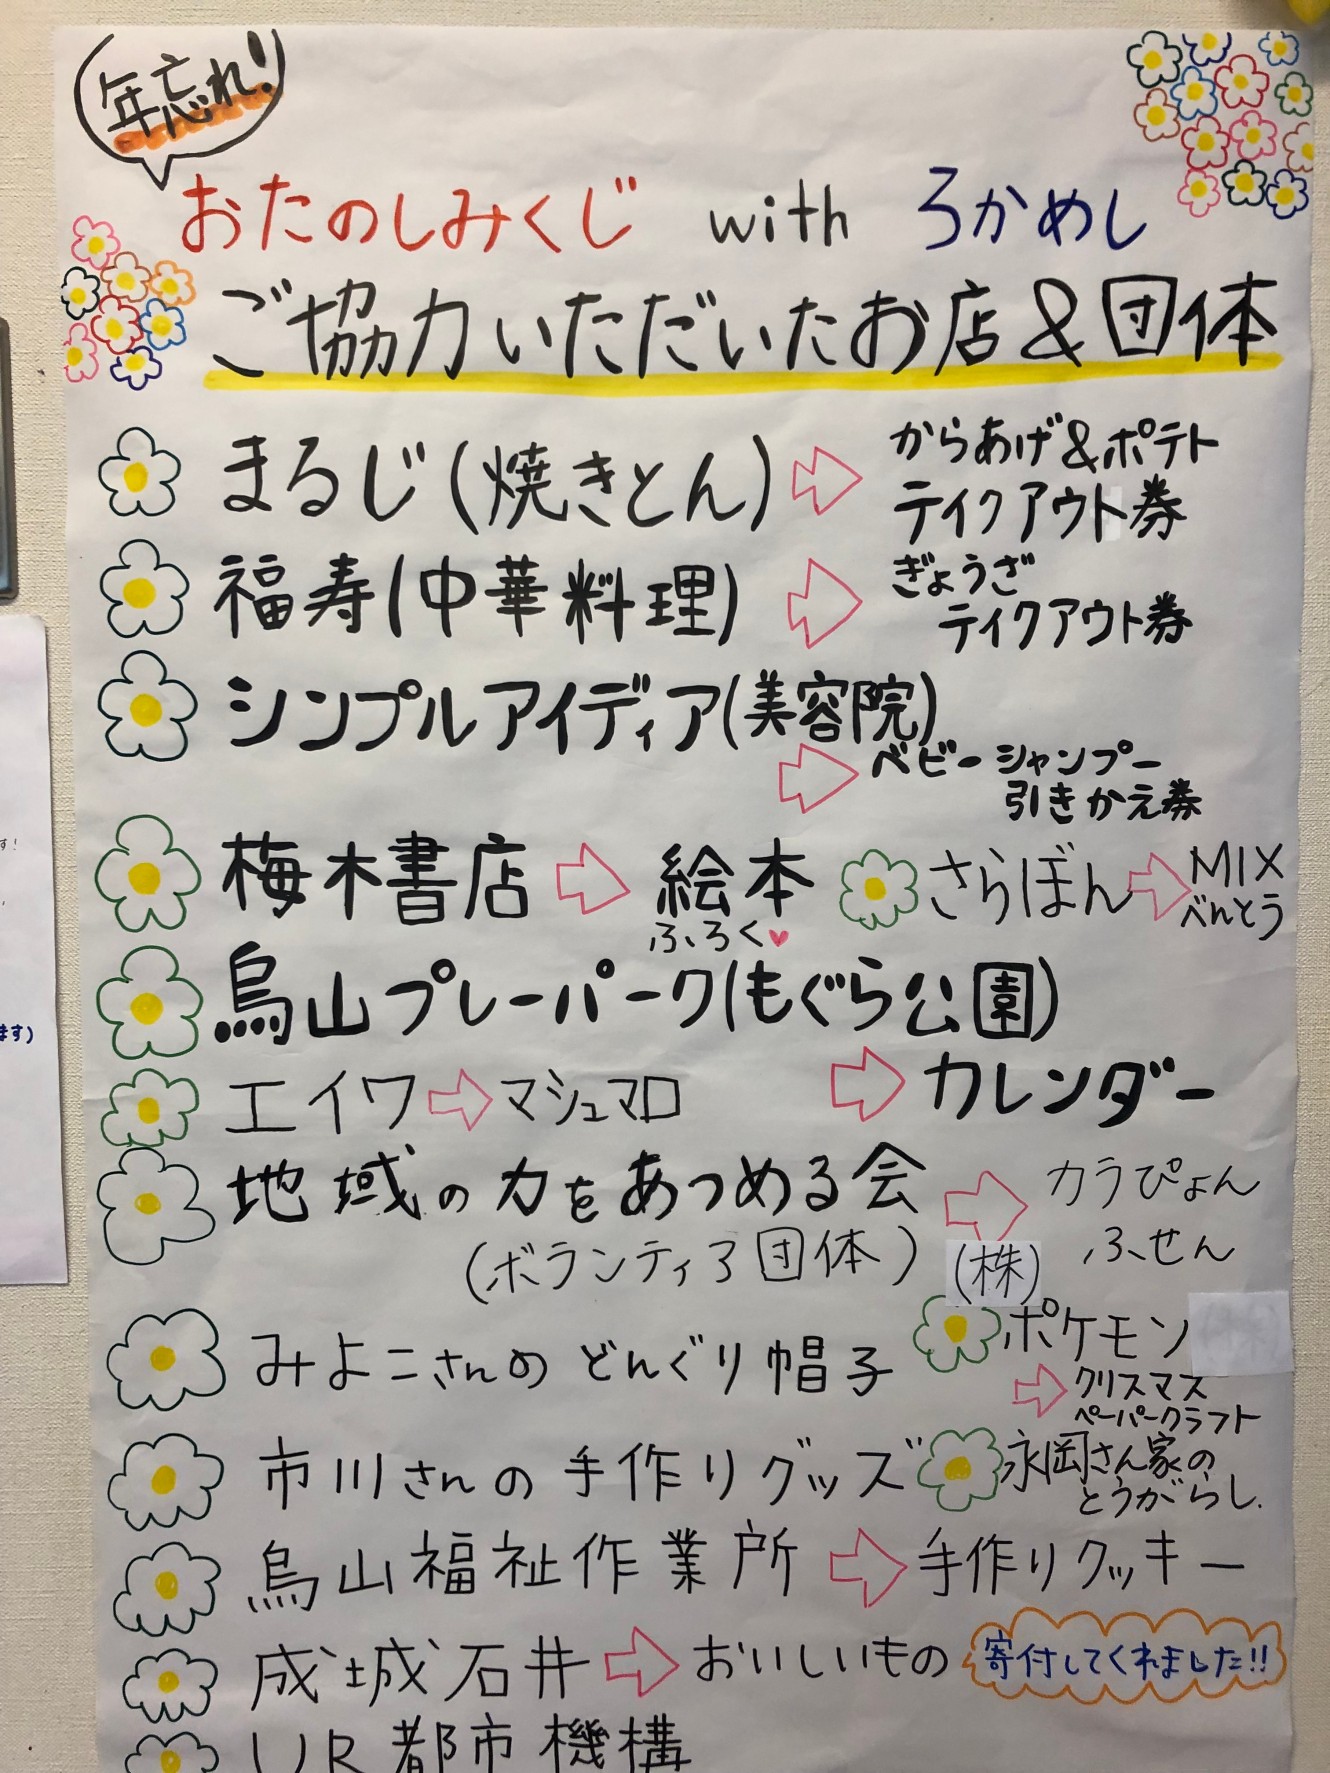 年忘れ!
おたのしみくじ with ろかめし
ご協力いただいたお店&団体
まるじ(焼きとん)
からあげ&ポテト
テイクアウト券
福寿(中華料理)
ぎょうざ
テイクアウト券
シンプルアイディア(美容院)
ベビーシャンプー
引きかえ券
梅木書店 絵本
ふろく
さらぼん MIX
べんとう
烏山プレーパーク(もぐら公園)
カレンダー
エイワ マシュマロ
地域の力をあつめる会
(ボランティア団体)
カラぴょん
ふせん
みよこさんのどんぐり帽子
(株)
ポケモン
クリスマス
ペーパークラフト
市川さんの手作りグッズ
永岡さん家の
とうがらし.
烏山福祉作業所 手作りクッキー
成城石井 おいしいもの 寄付してくれました!!
UR都市機構
す!
ます)